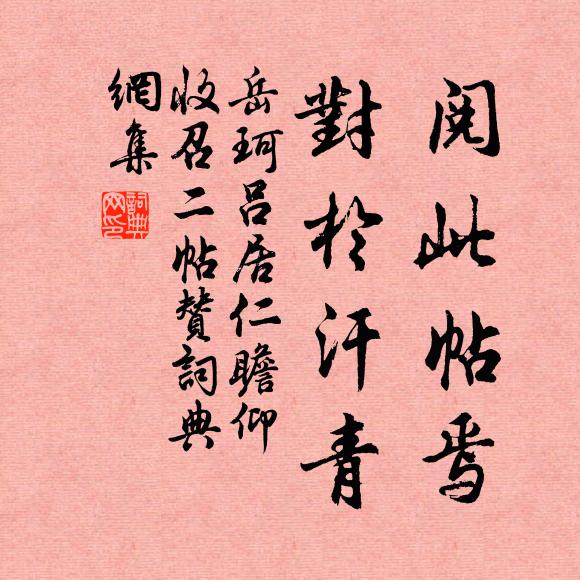 閱此帖焉
對於汗青
岳珂呂居仁瞻仰
收召二帖贊詞典
網集
詞典
网印